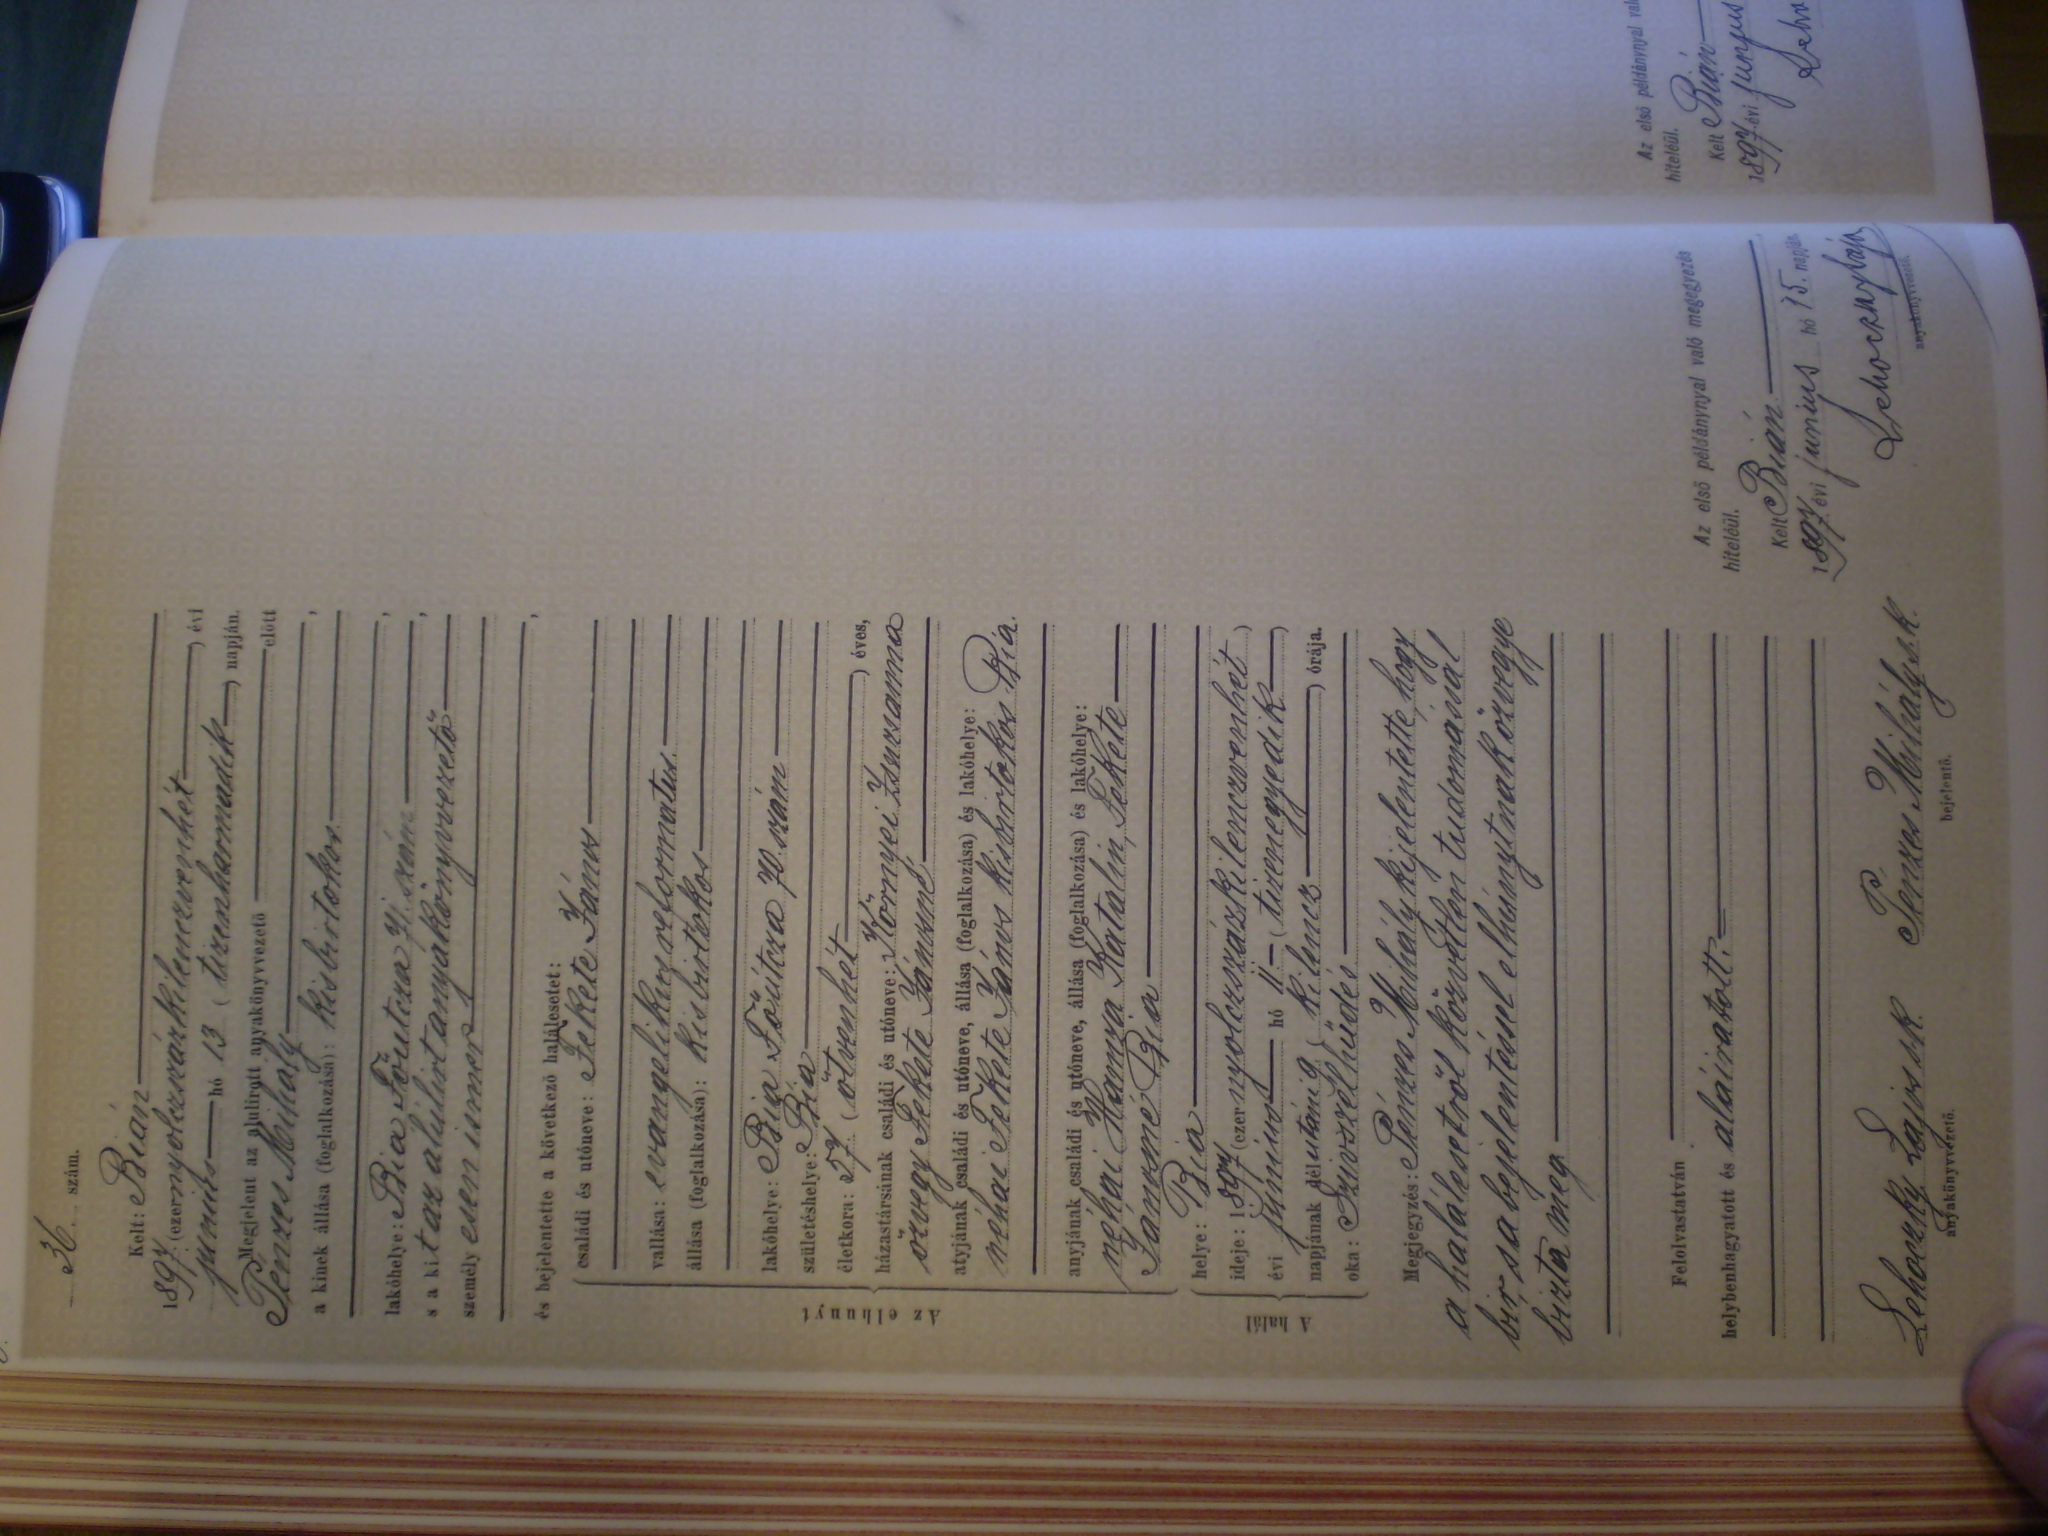 36. szám.
Kelt: Bián
1897. (ezernyolczszázkilenczvenhét) évi
junius hó 13 (tizenharmadik) napján.
Megjelent az alulirott anyakönyvvezető előtt
Pénzes Mihály
a kinek állása (foglalkozása): kisbirtokos,
lakóhelye: Bia Főutcza 71. szám,
s a kit az alulirt anyakönyvvezető,
személyesen ismer,
és bejelentette a következő halálesetet:
Az elhunyt
családi és utóneve: Fekete János
vallása: evangelikus reformatus.
állása (foglalkozása): kisbirtokos
lakóhelye: Bia Főútcza 70. szám
születéshelye: Bia
életkora: 57. (ötvenhét) éves,
házastársának családi és utóneve: Környei Zsuzsanna
özvegy Fekete Jánosné
atyjának családi és utóneve, állása (foglalkozása) és lakóhelye:
néhai Fekete János kisbirtokos Bia.
anyjának családi és utóneve, állása (foglalkozása) és lakóhelye:
néhai Hamza Katalin, Fekete
Jánosné Bia
A halál
helye: Bia
ideje: 1897 (ezernyolczszázkilenczvenhét)
évi június hó 11 (tizenegyedik)
napjának délutáni 9 (kilencz) órája.
oka: Szivszélhűdés
Megjegyzés: Pénzes Mihály kijelentette, hogy
a halálesetről közvetlen tudomással
bir, s a bejelentéssel elhúnytnak özvegye
bizta meg
Felolvastatván
helybenhagyatott és aláiratott.
Lehoczky Lajos s.k. Pénzes Mihály s.k.
anyakönyvvezető. bejelentő.
Az első példánynyal való megegyezés
hiteléül.
Kelt Bián
1897. évi június hó 15. napján.
Lehoczky Lajos
anyakönyvvezető.
Az első példánynyal
hiteléül.
Kelt Bián
1897. évi junius